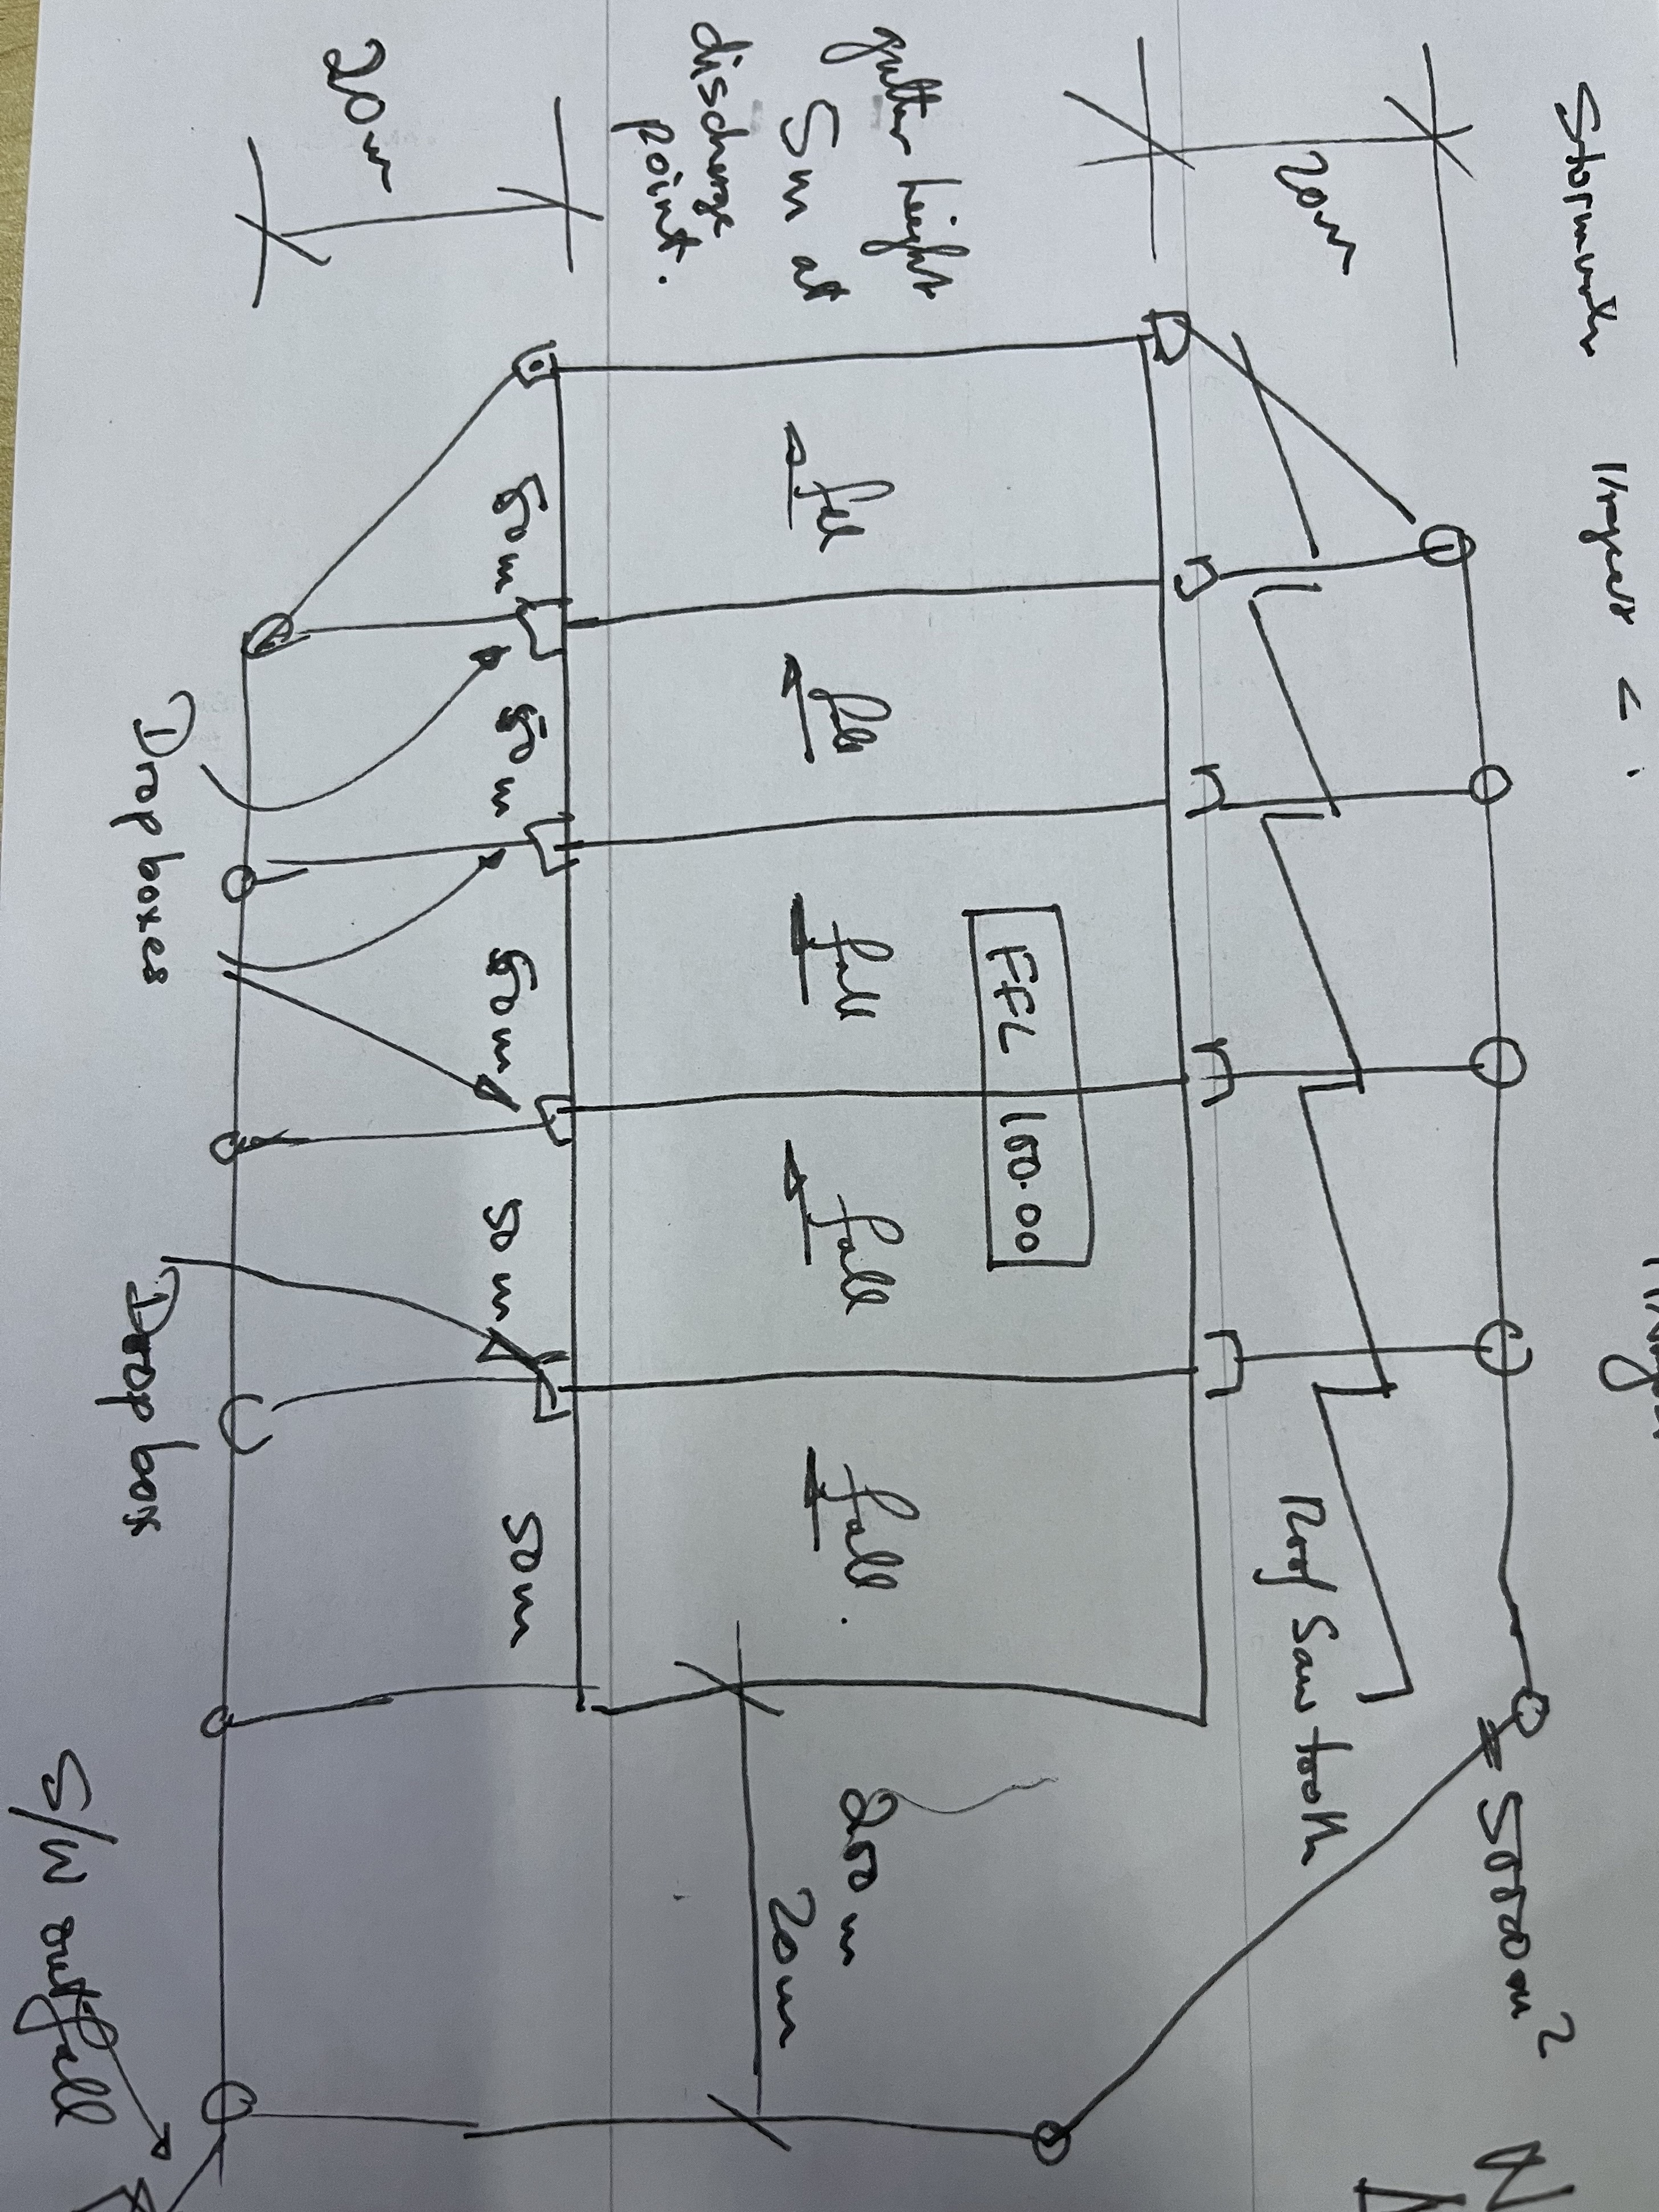 Stormwater
= 50000m²
20m
Roof Saw tooth
gutter height
5m at
discharge
point.
fall
fall
fall
fall
fall.
FFL 100.00
200m
20m
20m
50m
50m
50m
50m
50m
Drop boxes
Drop box
S/W outfall
N